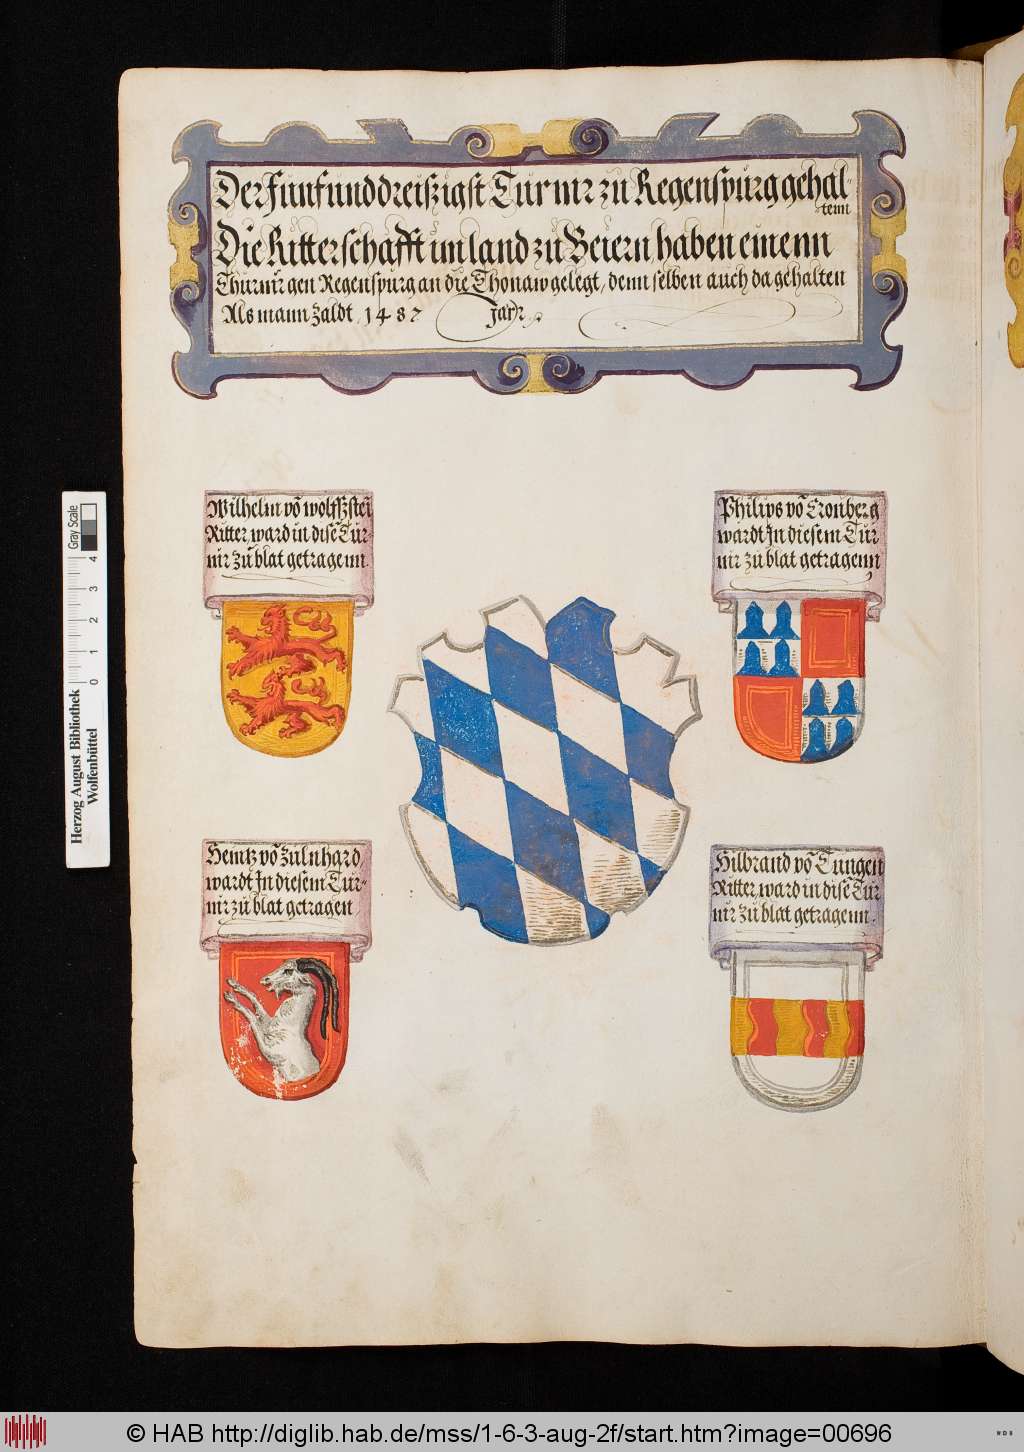 Der Funfunddreißigst Turnir zu Regenspurg gehal-
tenn
Die Ritterschafft im land zu Beiern, haben einenn
Thurnir gen Regenspurg an die Thonaw gelegt, denn selben auch da gehalten
Als mann zaldt 1487 jarr
Wilhelm vō wolffsstei
Ritter, ward in dise Tur-
nir zu blat getragenn.
Philips vō Cronberg
wardt In diesem Tur
nir zu blat getragenn
Heintz vō Zulnhard,
wardt In diesem Tur-
nir zu blat getragen
Hilbrand vō Tungen
Ritter, ward in dise Tur
nir zu blat getragenn.
Herzog August Bibliothek
Wolfenbüttel
0 1 2 3 4
Gray Scale
© HAB http://diglib.hab.de/mss/1-6-3-aug-2f/start.htm?image=00696